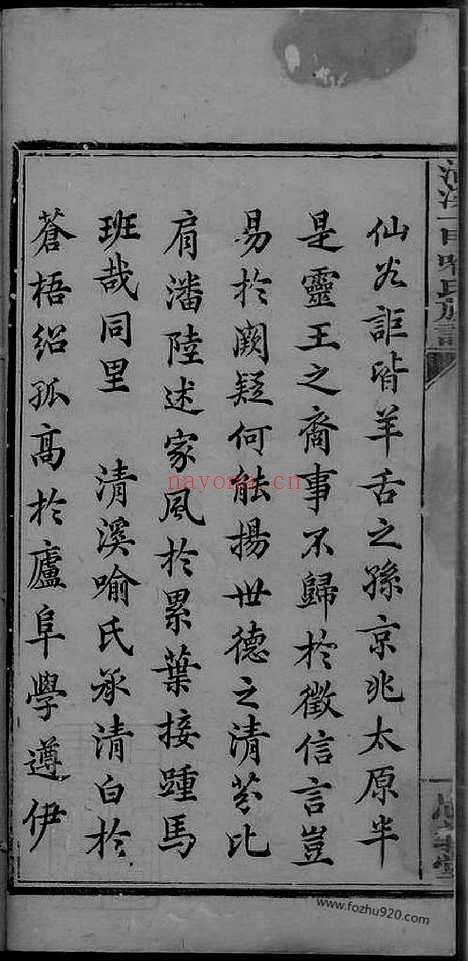 仙岩詎皆羊舌之孫京兆太原半
是靈王之裔事不歸於徵信言豈
易於闕疑何能揚世德之清芬比
肩潘陸述家風於累葉接踵馬
班哉同里　清溪喻氏承清白於
蒼梧紹孤高於廬阜學遵伊
nayona.cn
www.fozhu920.com